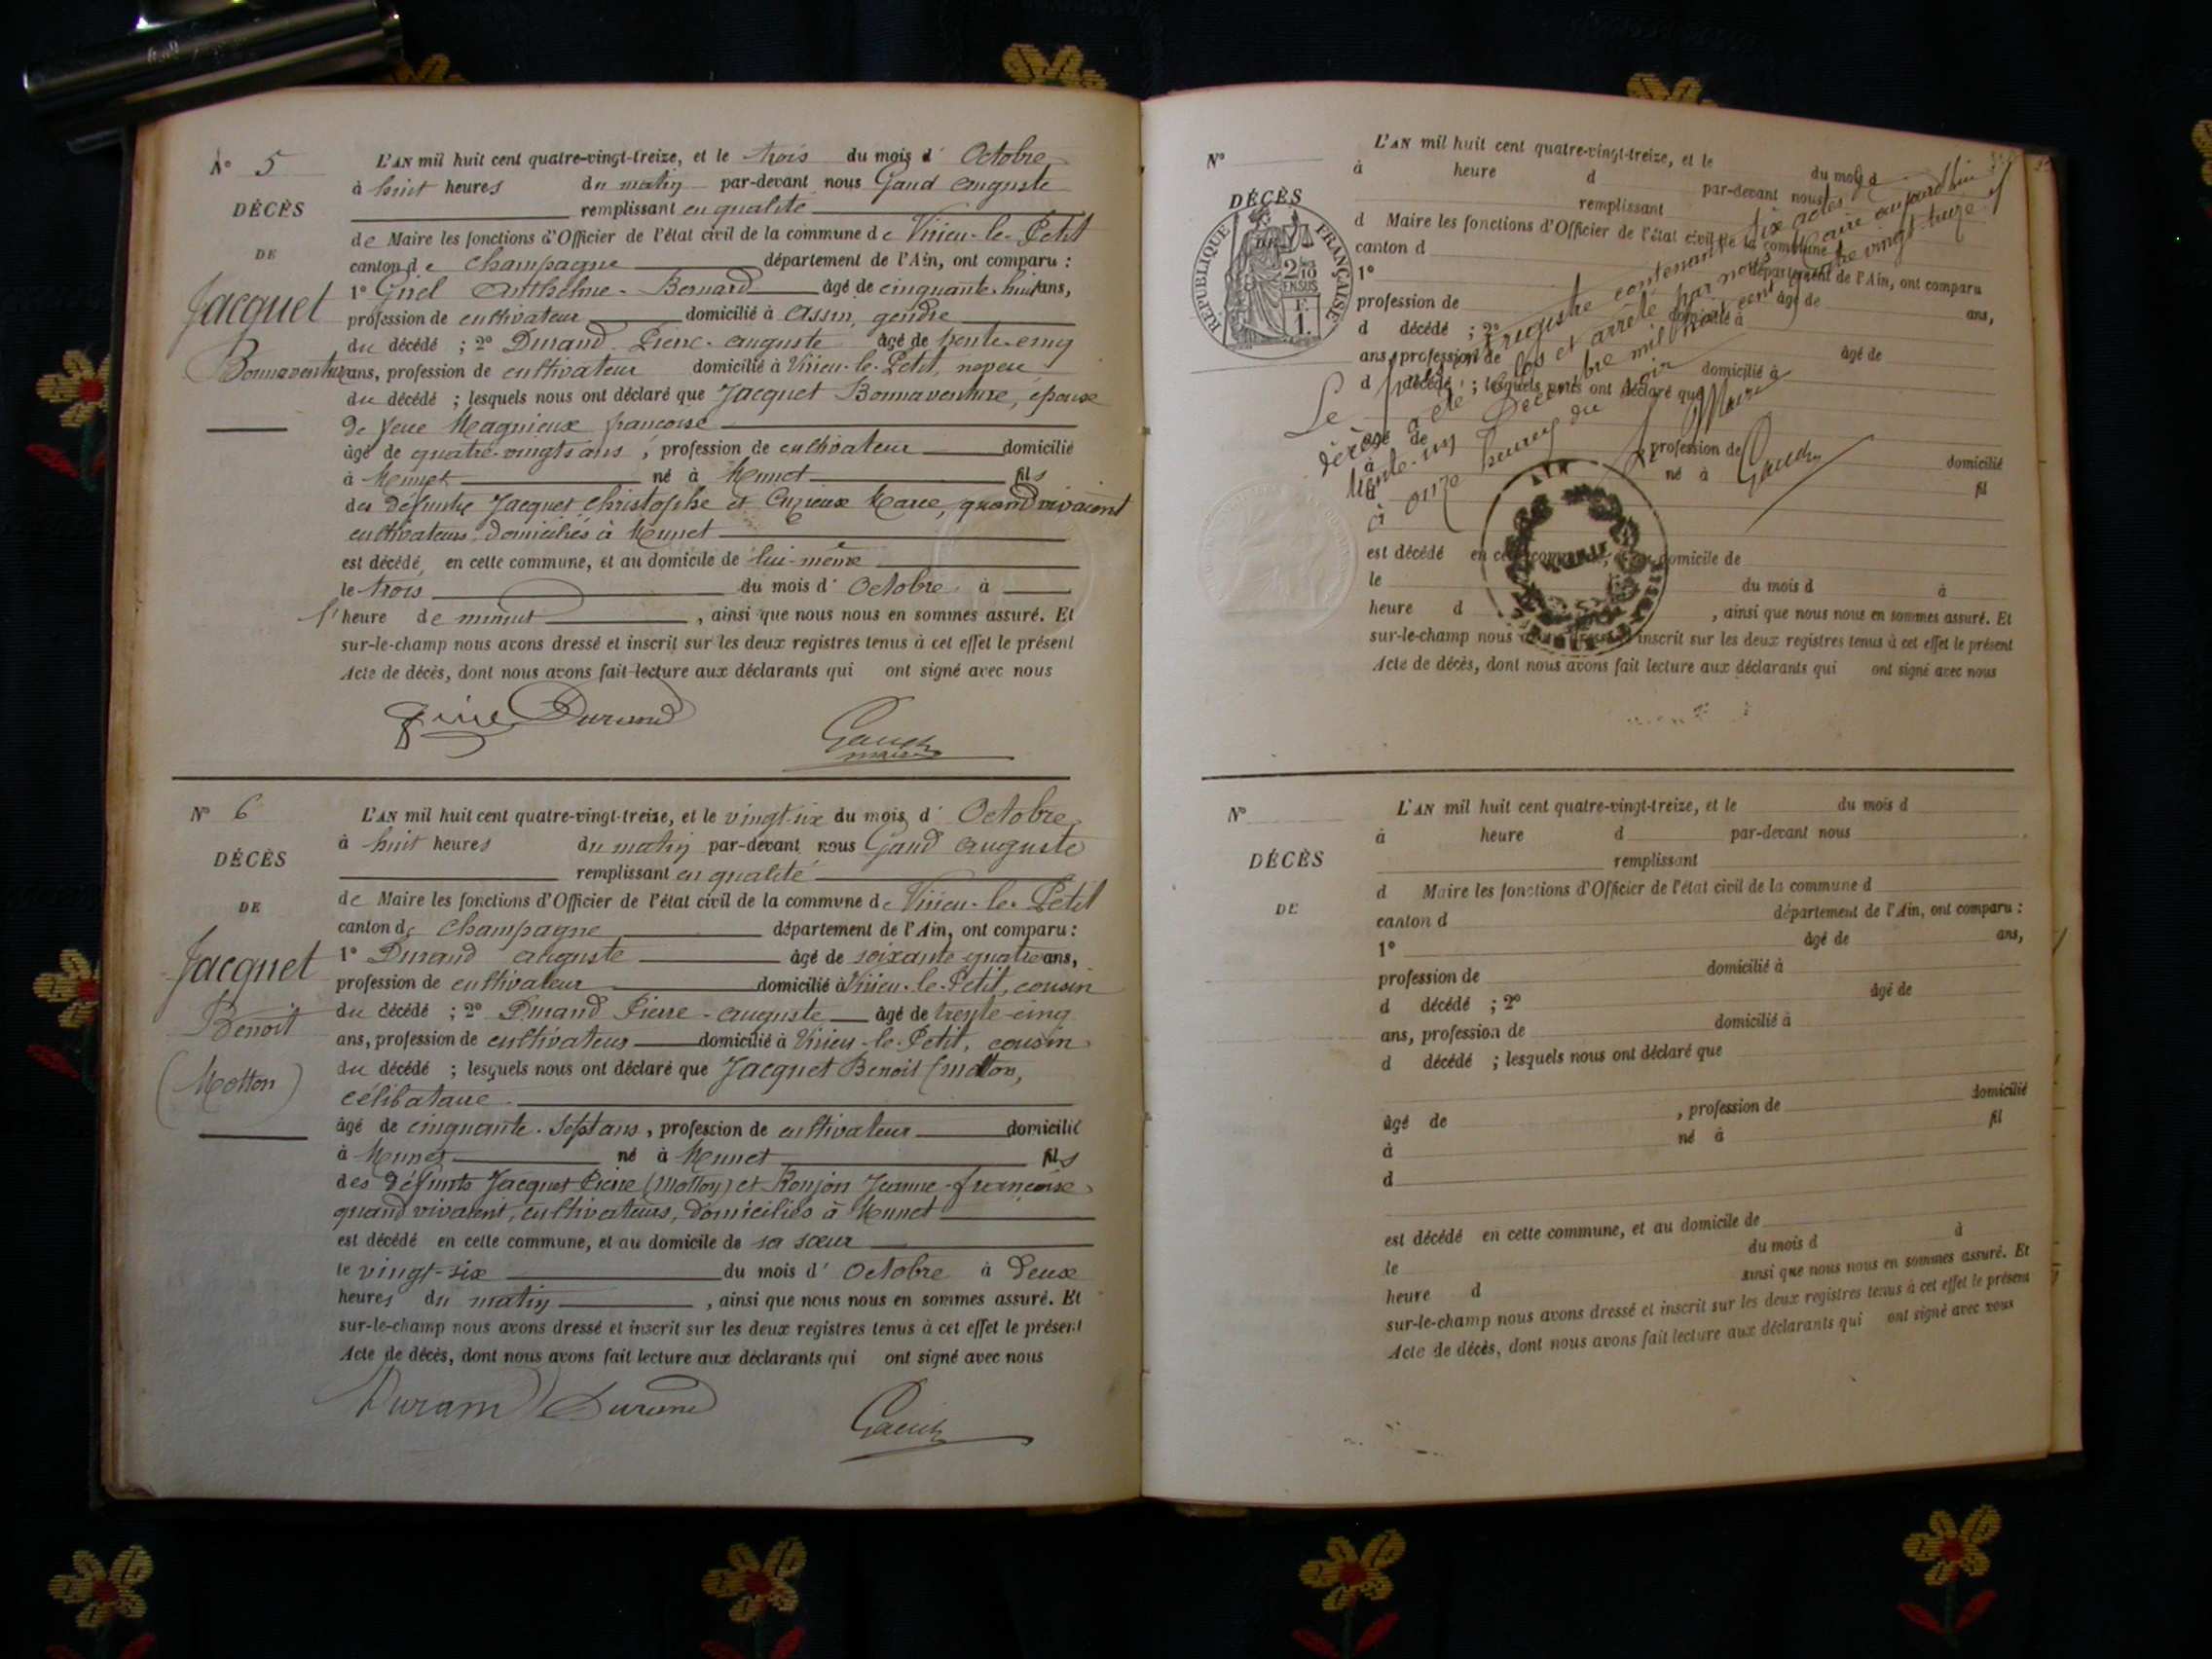 N° 5
DÉCÈS
DE
Jacquet
Bonnaventure
L'AN mil huit cent quatre-vingt-treize, et le trois du mois d' Octobre
à huit heures du matin par-devant nous Gand Auguste
remplissant en qualité
de Maire les fonctions d'Officier de l'état civil de la commune de Virieu-le-Petit
canton de Champagne département de l'Ain, ont comparu :
1° Anthelme-Bernard âgé de cinquante-huit ans,
profession de cultivateur domicilié à Assin, gendre
du décédé ; 2° Durand Pierre-Auguste âgé de trente-cinq
ans, profession de cultivateur domicilié à Virieu-le-Petit, neveu
du décédé ; lesquels nous ont déclaré que Jacquet Bonnaventure, époux
de feue Magnieux françoise
âgé de quatre-vingts ans, profession de cultivateur domicilié
à Munet né à Munet fils
des défunts Jacquet Christophe et Marie, quand vivaient
cultivateurs domiciliés à Munet
est décédé, en cette commune, et au domicile de lui-même
le trois du mois d' Octobre à
l'heure de minuit, ainsi que nous nous en sommes assuré. Et
sur-le-champ nous avons dressé et inscrit sur les deux registres tenus à cet effet le présent
Acte de décès, dont nous avons fait lecture aux déclarants qui ont signé avec nous
Durand
Gand
maire
N° 6
DÉCÈS
DE
Jacquet
Benoit
(Motton)
L'AN mil huit cent quatre-vingt-treize, et le vingt-six du mois d' Octobre
à huit heures du matin par-devant nous Gand Auguste
remplissant en qualité
de Maire les fonctions d'Officier de l'état civil de la commune de Virieu-le-Petit
canton de Champagne département de l'Ain, ont comparu :
1° Durand Auguste âgé de soixante-quatre ans,
profession de cultivateur domicilié à Virieu-le-Petit, cousin
du décédé ; 2° Durand Pierre-Auguste âgé de trente-cinq
ans, profession de cultivateur domicilié à Virieu-le-Petit, cousin
du décédé ; lesquels nous ont déclaré que Jacquet Benoit (Motton,
célibataire
âgé de cinquante-sept ans, profession de cultivateur domicilié
à Munet né à Munet fils
des défunts Jacquet Pierre (Motton) et Ronjon Jeanne-françoise
quand vivaient, cultivateurs, domiciliés à Munet
est décédé en cette commune, et au domicile de sa sœur
le vingt-six du mois d' Octobre à Deux
heures du matin, ainsi que nous nous en sommes assuré. Et
sur-le-champ nous avons dressé et inscrit sur les deux registres tenus à cet effet le présent
Acte de décès, dont nous avons fait lecture aux déclarants qui ont signé avec nous
Durand Durand
Gand
N°
DÉCÈS
DE
RÉPUBLIQUE FRANÇAISE
2/10
EN SUS
F.
1.
L'AN mil huit cent quatre-vingt-treize, et le du mois d
à heure d par-devant nous
remplissant
d Maire les fonctions d'Officier de l'état civil de la commune d
canton d département de l'Ain, ont comparu
1° âgé de ans,
profession de domicilié à
d décédé ; 2° âgé de
ans, profession de domicilié à
d décédé ; lesquels nous ont déclaré que
âgé de , profession de domicilié
à né à fil
d
Le présent registre contenant six actes de
décès a été clos et arrêté par nous Maire aujourd'hui
trente-un Décembre mil huit cent quatre vingt treize
à onze heures du soir
Le Maire
Gand
AIN
MAIRIE
est décédé en cette commune, et au domicile de
le du mois d à
heure d , ainsi que nous nous en sommes assuré. Et
sur-le-champ nous avons dressé et inscrit sur les deux registres tenus à cet effet le présent
Acte de décès, dont nous avons fait lecture aux déclarants qui ont signé avec nous
N°
DÉCÈS
DE
L'AN mil huit cent quatre-vingt-treize, et le du mois d
à heure d par-devant nous
remplissant
d Maire les fonctions d'Officier de l'état civil de la commune d
canton d département de l'Ain, ont comparu :
1° âgé de ans,
profession de domicilié à
d décédé ; 2° âgé de
ans, profession de domicilié à
d décédé ; lesquels nous ont déclaré que
âgé de , profession de domicilié
à né à fil
d
est décédé en cette commune, et au domicile de
le du mois d à
heure d ainsi que nous nous en sommes assuré. Et
sur-le-champ nous avons dressé et inscrit sur les deux registres tenus à cet effet le présent
Acte de décès, dont nous avons fait lecture aux déclarants qui ont signé avec nous